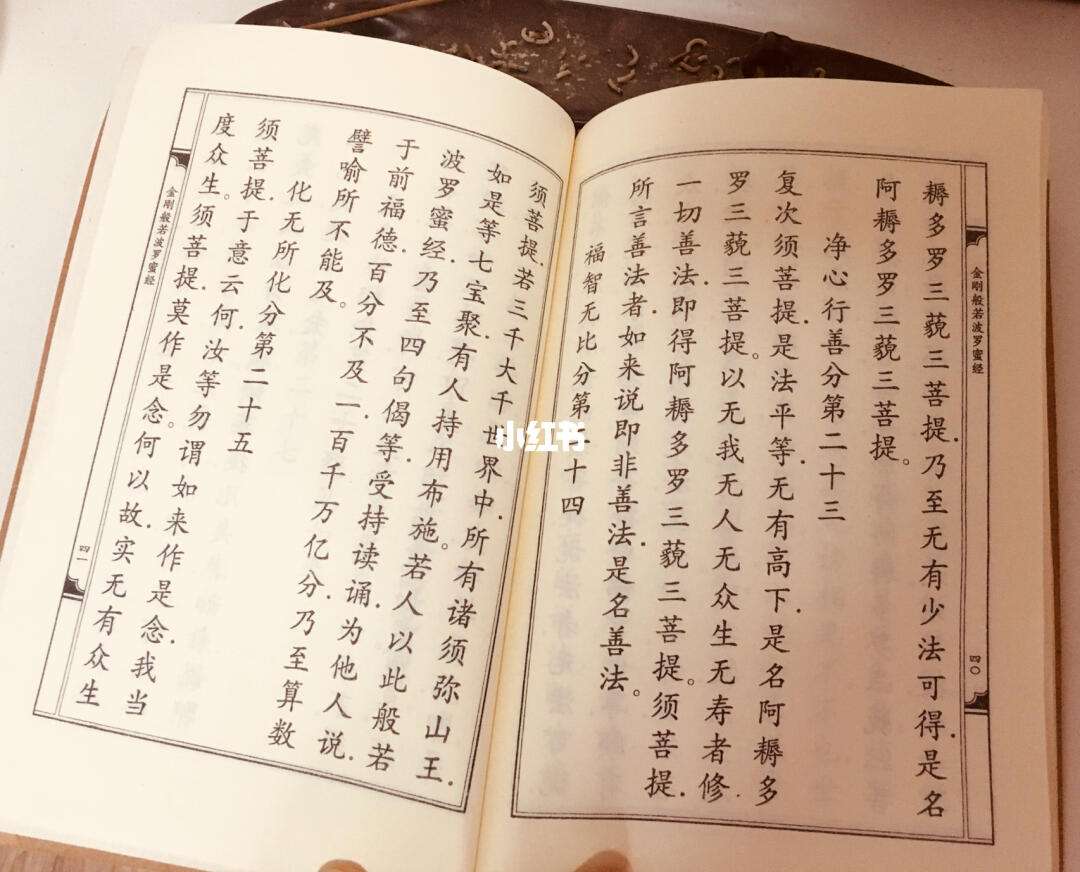 耨多罗三藐三菩提.乃至无有少法可得.是名
阿耨多罗三藐三菩提。
净心行善分第二十三
复次须菩提.是法平等.无有高下.是名阿耨多
罗三藐三菩提。以无我无人无众生无寿者.修
一切善法.即得阿耨多罗三藐三菩提。须菩提.
所言善法者.如来说即非善法.是名善法。
福智无比分第二十四
金刚般若波罗蜜经
四〇
须菩提.若三千大千世界中.所有诸须弥山王.
如是等七宝聚.有人持用布施。若人以此般若
波罗蜜经.乃至四句偈等.受持读诵.为他人说.
于前福德.百分不及一.百千万亿分.乃至算数
譬喻所不能及。
化无所化分第二十五
须菩提.于意云何.汝等勿谓如来作是念.我当
度众生。须菩提.莫作是念.何以故.实无有众生
金刚般若波罗蜜经
四一
小红书